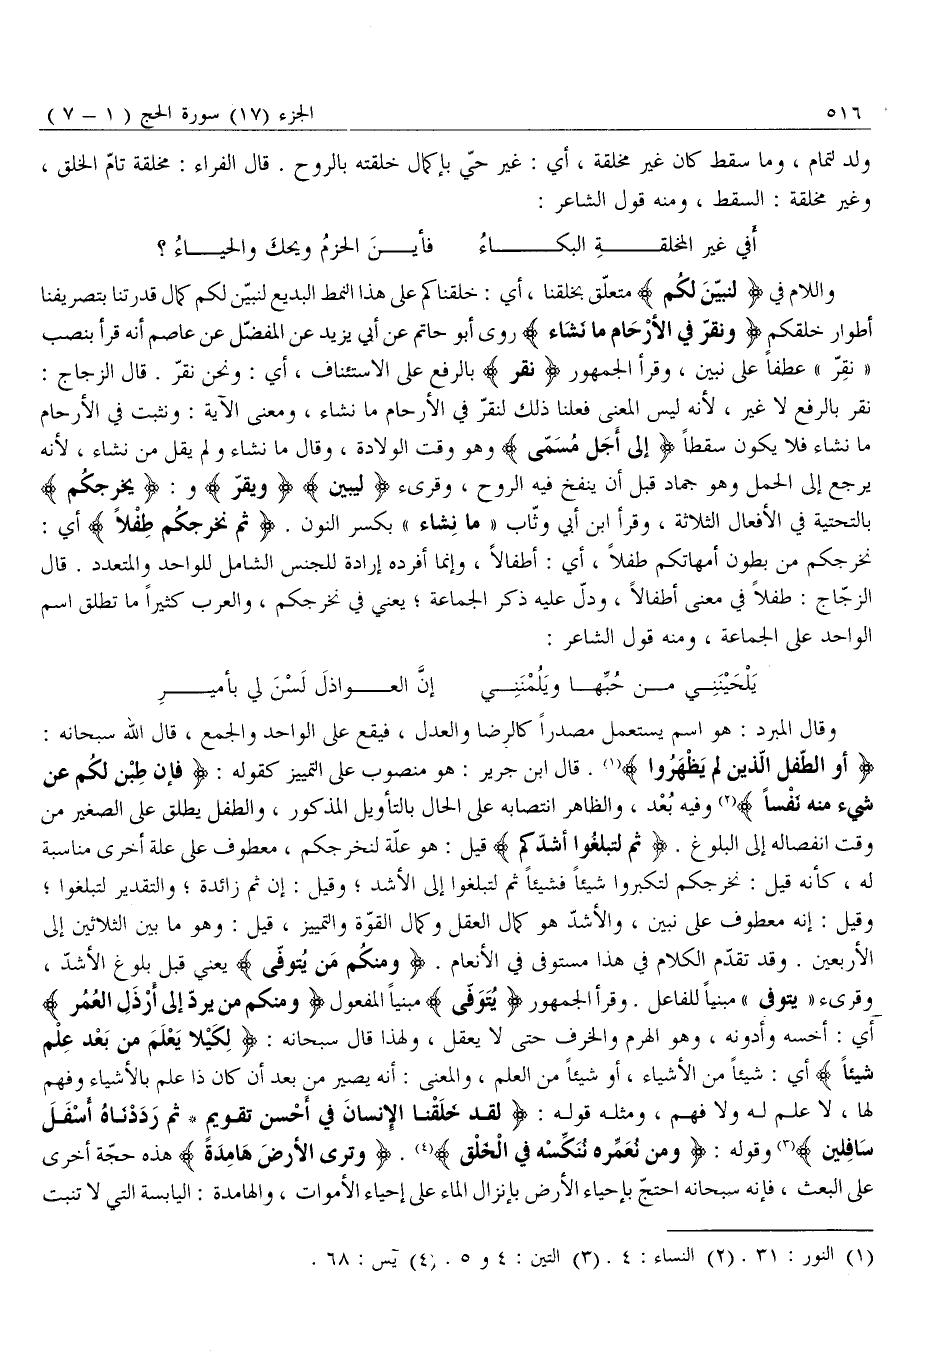 ٥١٦ الجزء (١٧) سورة الحج ( ١ – ٧ )
ولد لتمام ، وما سقط كان غير مخلقة ، أي : غير حيّ بإكمال خلقته بالروح . قال الفراء : مخلقة تامّ الخلق ،
وغير مخلقة : السقط ، ومنه قول الشاعر :
أَفي غير المخلقـــــــة البكـــــــاءُ فأيـــنَ الحزمُ ويحكَ والحيـــاءُ ؟
واللام في ﴿ لنبيّنَ لكُم ﴾ متعلّق بخلقنا ، أي : خلقناكم على هذا النمط البديع لنبيّن لكم كمال قدرتنا بتصريفنا
أطوار خلقكم ﴿ ونقرّ في الأرْحَام ما نَشَاء ﴾ روى أبو حاتم عن أبي يزيد عن المفضّل عن عاصم أنه قرأ بنصب
« نقِرّ » عطفاً على نبين ، وقرأ الجمهور ﴿ نقر ﴾ بالرفع على الاستئناف ، أي : ونحن نقرّ . قال الزجاج :
نقر بالرفع لا غير ، لأنه ليس المعنى فعلنا ذلك لنقرّ في الأرحام ما نشاء ، ومعنى الآية : ونثبت في الأرحام
ما نشاء فلا يكون سقطاً ﴿ إلى أَجَل مُسَمّى ﴾ وهو وقت الولادة ، وقال ما نشاء ولم يقل من نشاء ، لأنه
يرجع إلى الحمل وهو جماد قبل أن ينفخ فيه الروح ، وقرىء ﴿ ليبين ﴾ ﴿ ويقرّ ﴾ و : ﴿ يخرجكُم ﴾
بالتحتية في الأفعال الثلاثة ، وقرأ ابن أبي وثّاب « ما نِشاء » بكسر النون . ﴿ ثم نخرجكُم طِفْلاً ﴾ أي :
نخرجكم من بطون أمهاتكم طفلاً ، أي : أطفالاً ، وإنما أفرده إرادة للجنس الشامل للواحد والمتعدد . قال
الزجّاج : طفلاً في معنى أطفالاً ، ودلّ عليه ذكر الجماعة ؛ يعني في نخرجكم ، والعرب كثيراً ما تطلق اسم
الواحد على الجماعة ، ومنه قول الشاعر :
يَلْحَيْنَنِـي مـــن حُبِّهـــا ويَلُمْنَنِـي إنَّ العـــــواذلَ لَسْنَ لي بأميـــرِ
وقال المبرد : هو اسم يستعمل مصدراً كالرضا والعدل ، فيقع على الواحد والجمع ، قال الله سبحانه :
﴿ أو الطّفل الّذين لم يَظْهَرُوا ﴾(١) . قال ابن جرير : هو منصوب على التمييز كقوله : ﴿ فإن طِبْن لكُم عن
شيء منه نَفْساً ﴾(٢) وفيه بُعْد ، والظاهر انتصابه على الحال بالتأويل المذكور ، والطفل يطلق على الصغير من
وقت انفصاله إلى البلوغ . ﴿ ثم لتبلغُوا أشدّكم ﴾ قيل : هو علّة لنخرجكم ، معطوف على علة أخرى مناسبة
له ، كأنه قيل : نخرجكم لتكبروا شيئاً فشيئاً ثم لتبلغوا إلى الأشد ؛ وقيل : إن ثم زائدة ؛ والتقدير لتبلغوا ؛
وقيل : إنه معطوف على نبين ، والأشدّ هو كمال العقل وكمال القوّة والتمييز ، قيل : وهو ما بين الثلاثين إلى
الأربعين . وقد تقدّم الكلام في هذا مستوفى في الأنعام . ﴿ ومنكُم مَن يُتوفّى ﴾ يعني قبل بلوغ الأشدّ ،
وقرىء « يتوفى » مبنياً للفاعل . وقرأ الجمهور ﴿ يُتَوَفّى ﴾ مبنياً للمفعول ﴿ ومنكم من يردّ إلى أَرْذَلِ العُمُر ﴾
أي : أخسه وأدونه ، وهو الهرم والخرف حتى لا يعقل ، ولهذا قال سبحانه : ﴿ لِكَيْلا يَعْلَمَ من بَعْد عِلْم
شيئاً ﴾ أي : شيئاً من الأشياء ، أو شيئاً من العلم ، والمعنى : أنه يصير من بعد أن كان ذا علم بالأشياء وفهم
لها ، لا علم له ولا فهم ، ومثله قوله : ﴿ لقد خَلَقْنا الإنسانَ في أحْسن تقويم * ثم رَدَدْنَاهُ أسْفَلَ
سَافِلين ﴾(٣) وقوله : ﴿ ومن نُعَمّره نُنَكِّسْه في الْخَلْق ﴾(٤) . ﴿ وترى الأرضَ هَامِدَةً ﴾ هذه حجّة أخرى
على البعث ، فإنه سبحانه احتجّ بإحياء الأرض بإنزال الماء على إحياء الأموات ، والهامدة : اليابسة التي لا تنبت
(١) النور : ٣١ . (٢) النساء : ٤ . (٣) التين : ٤ و ٥ . (٤) يٓس : ٦٨ .